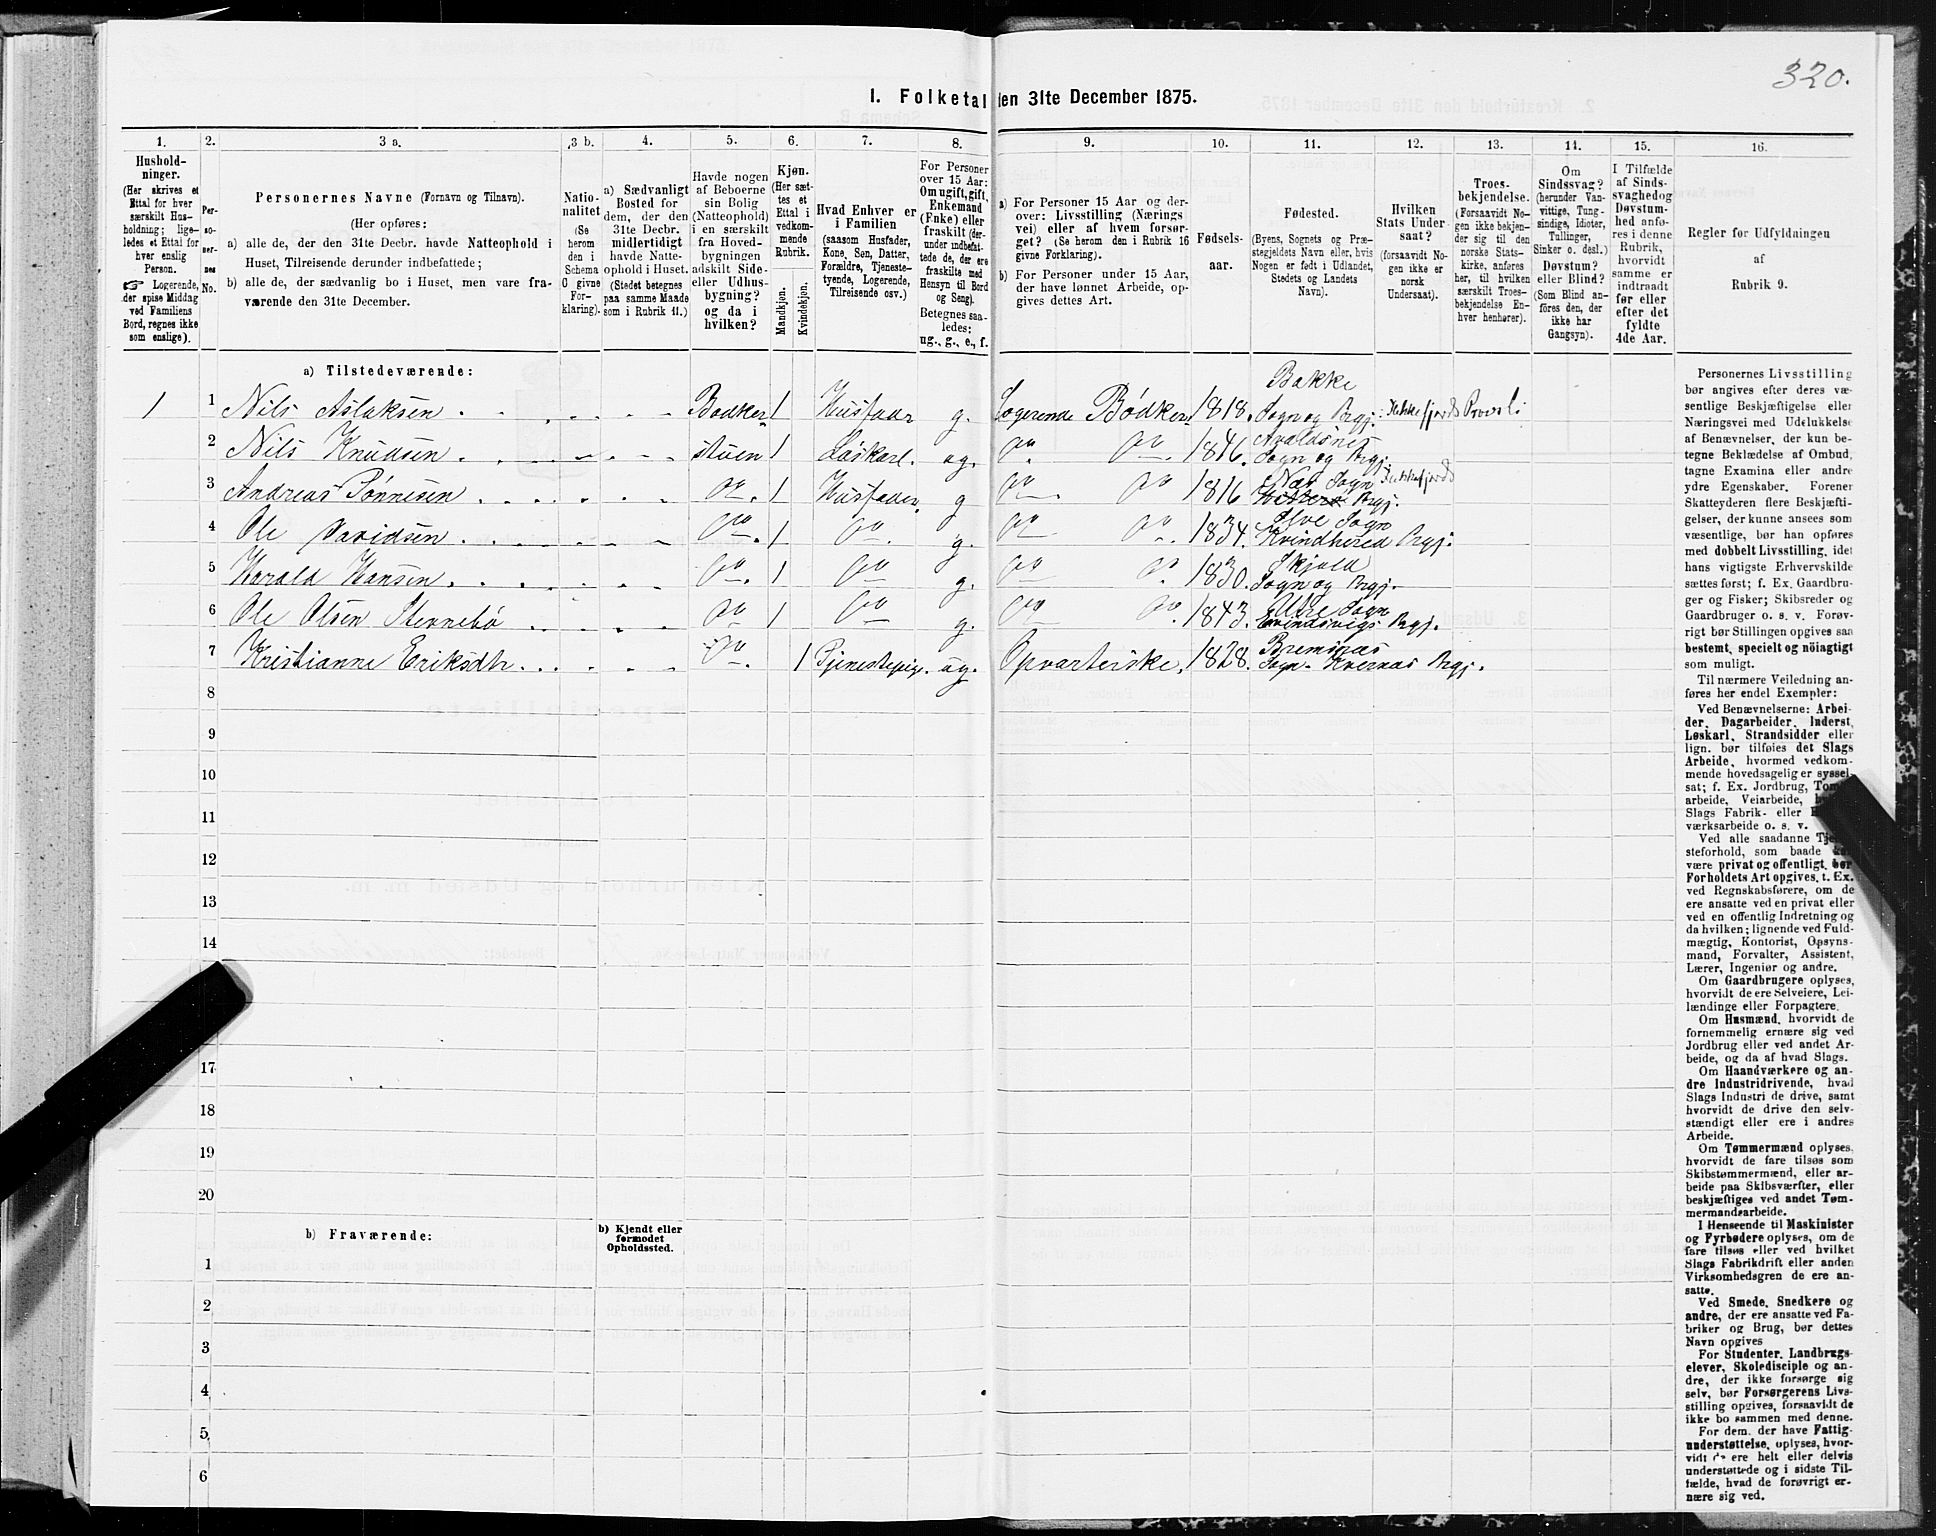 320.
I. Folketal den 31te December 1875.
1. 2. 3 a. 3 b. 4. 5. 6. 7. 8. 9. 10. 11. 12. 13. 14. 15. 16.
Hushold-
ninger.
(Her skrives et
Ettal for hver
særskilt Hus-
holdning; lige-
ledes et Ettal for
hver enslig
Person.
☞ Logerende,
der spise Middag
ved Familiens
Bord, regnes ikke
som enslige).
Per-
so-
ner-
nes
No.
Personernes Navne (Fornavn og Tilnavn).
(Her opføres:
a) alle de, der den 31te Decbr. havde Natteophold i
Huset, Tilreisende derunder indbefattede;
b) alle de, der sædvanlig bo i Huset, men vare fra-
værende den 31te December.
Natio-
nalitet
(Se
herom
den i
Schema
C givne
For-
klaring).
a) Sædvanligt
Bosted for
dem, der den
31te Decbr.
midlertidigt
havde Natte-
ophold i Huset.
(Stedet betegnes
paa samme Maade
som i Rubrik 11.)
Havde nogen
af Beboerne
sin Bolig
(Natteophold)
i en særskilt
fra Hoved-
bygningen
adskilt Side-
eller Udhus-
bygning?
og da i
hvilken?
Kjøn.
(Her sæt-
tes et
Ettal i
vedkom-
mende
Rubrik.
Mandkjøn.
Kvindekjøn.
Hvad Enhver er
i Familien
(saasom Husfader,
Kone, Søn, Datter,
Forældre, Tjeneste-
tyende, Logerende,
Tilreisende osv.)
For Personer
over 15 Aar:
Om ugift, gift,
Enkemand
(Enke) eller
fraskilt (der-
under indbefat-
tede de, der ere
fraskilte med
Hensyn til Bord
og Seng).
Betegnes saa-
ledes:
ug., g., e., f.
a) For Personer 15 Aar og der-
over: Livsstilling (Nærings
vei) eller af hvem forsør-
get? (Se herom den i Rubrik 16
givne Forklaring).
b) For Personer under 15 Aar,
der have lønnet Arbeide, op-
gives dettes Art.
Fødsels-
aar.
Fødested.
(Byens, Sognets og Præ-
stegjeldets Navn eller, hvis
Nogen er født i Udlandet,
Stedets og Landets
Navn).
Hvilken
Stats Under
saat?
(forsaavidt No-
gen ikke er
norsk
Undersaat).
Troes-
bekjendelse.
(Forsaavidt No-
gen ikke bekjen-
der sig til den
norske Stats-
kirke, anføres
her, til hvilken
særskilt Troes-
bekjendelse En-
hver henhører).
Om
Sindssvag?
(herunder Van-
vittige, Tung-
sindige, Idioter,
Tullinger,
Sinker o. desl.)
Døvstum?
eller Blind?
(Som Blind an-
føres den, der
ikke har
Gangsyn).
I Tilfælde
af Sinds-
svaghed og
Døvstum-
hed anfø-
res i denne
Rubrik,
hvorvidt
samme er
indtraadt
før eller
efter det
fyldte
4de Aar.
Regler for Udfyldningen
af
Rubrik 9.
a) Tilstedeværende:
1 1 Nils Aslaksen Bodker 1 Husfader g. Logerende Bødker 1818. Bakke Sogn og Prgj.
2 Nils Knudsen stuen 1 Løskarl. ug. Do Do 1846. Avaldsnes Sogn og Prgj.
3 Andreas Tønnesen Do 1 Husfader g Do Do 1816 Næs Sogn Prgj.
4 Ole Davidsen Do 1 Do g. Do Do 1834. Ølve Sogn Kvindhered Prgj.
5 Harald Hansen Do 1 Do g. Do Do 1830. Skjold Sogn og Prgj.
6 Ole Olsen Stennebø Do 1 Do g. Do Do 1843. Sogn Evindsvigs Prgj.
7 Kristianne Eriksdtr Do 1 Tjenestepige. ug. Opvarterske. 1828. Bremsnæs Sogn Kvernæs Prgj.
8
9
10
11
12
13
14
17
18
19
20
b) Fraværende:
b) Kjendt eller
formodet
Opholdssted.
1
2
3
4
5
6
Personernes Livsstilling
bør angives efter deres væ-
sentlige Beskjæftigelse eller
Næringsvei med Udelukkelse
af Benævnelser, der kun be-
tegne Beklædelse af Ombud,
tagne Examina eller andre
ydre Egenskaber. Forener
Skatteyderen flere Beskjæfti-
gelser, der kunne ansees som
væsentlige, bør han opføres
med dobbelt Livsstilling, idet
hans vigtigste Erhvervskilde
sættes først; f. Ex. Gaardbru-
ger og Fisker; Skibsreder og
Gaardbruger o. s. v. Forøv-
rigt bør Stillingen opgives saa
bestemt, specielt og nöiagtigt
som muligt.
Til nærmere Veiledning an-
føres her endel Exempler:
Ved Benævnelserne: Arbei-
der, Dagarbeider, Inderst,
Løskarl, Strandsidder eller
lign. bør tilføies det Slags
Arbeide, hvormed vedkom-
mende hovedsagelig er syssel-
sat; f. Ex. Jordbrug,
arbeide, Veiarbeide,
Slags Fabrik- eller
værksarbeide o. s. v.
Ved alle saadanne
steforhold, som baade
være privat og offentligt, bør
Forholdets Art opgives, t. Ex.
ved Regnskabsførere, om de
ere ansatte ved en privat eller
ved en offentlig Indretning og
da hvilken; lignende ved Fuld-
mægtig, Kontorist, Opsyns-
mand, Forvalter, Assistent,
Lærer, Ingeniør og andre.
Om Gaardbrugere oplyses,
hvorvidt de ere Selveiere, Lei-
lændinge eller Forpagtere.
Om Husmænd, hvorvidt de
fornemmelig ernære sig ved
Jordbrug eller ved andet Ar-
beide, og da af hvad Slags.
Om Haandværkere og an-
dre Industridrivende, hvad
Slags Industri de drive, samt
hvorvidt de drive den selv-
stændigt eller ere i andres
Arbeide.
Om Tømmermænd oplyses,
hvorvidt de fare tilsøs som
Skibstømmermænd, eller ar-
beide paa Skibsværfter, eller
beskjæftiges ved andet Tøm-
mermandsarbeide.
I Henseende til Maskinister
og Fyrbødere oplyses, om de
fare tilsøs eller ved hvilket
Slags Fabrikdrift eller anden
Virksomhedsgren de ere an-
satte.
Ved Smede, Snedkere og
andre, der ere ansatte ved Fa-
briker og Brug, bør dettes
Navn opgives
For Studenter, Landbrugs-
elever, Skoledisciple og an-
dre, der ikke forsørge sig
selv, bør Forsørgerens Livs-
stilling opgives, forsaavidt de
ikke bo sammen med denne.
For dem, der have Fattig-
understøttelse, oplyses, hvor-
vidt de ere helt eller delvis
understøttede og i sidste Til-
fælde, hvad de forøvrigt er-
nære sig ved.